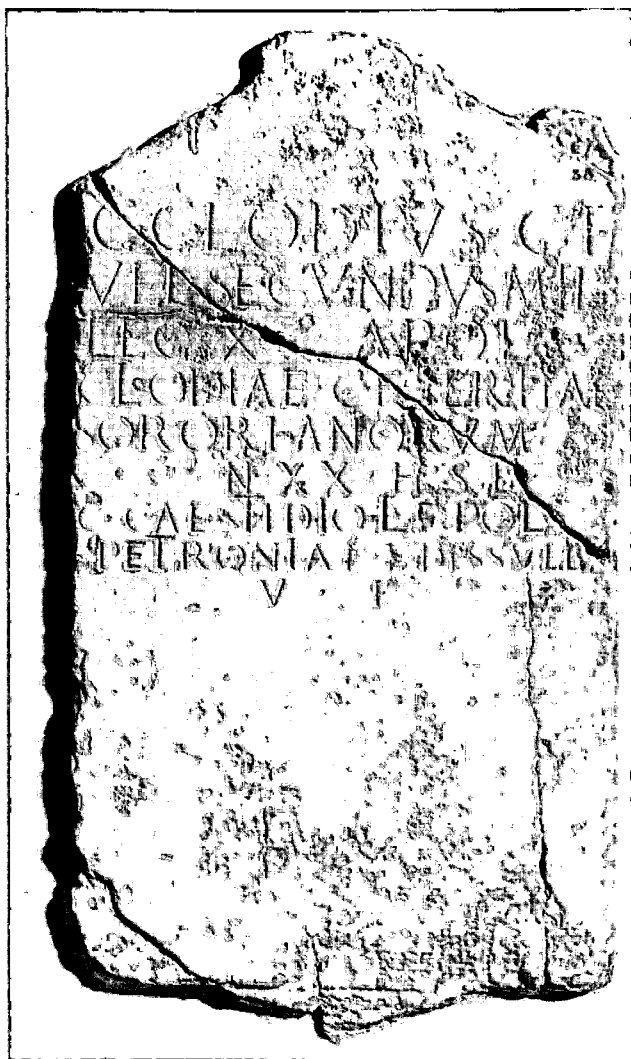 C CLODIVS C F
VEL SECVNDVS MIL
LEG X APOL
CLODIAE C F TERTIAE
SORORI ANORVM
N XX H S E
C CAESTIDIO L F POL
PETRONIAE
V F